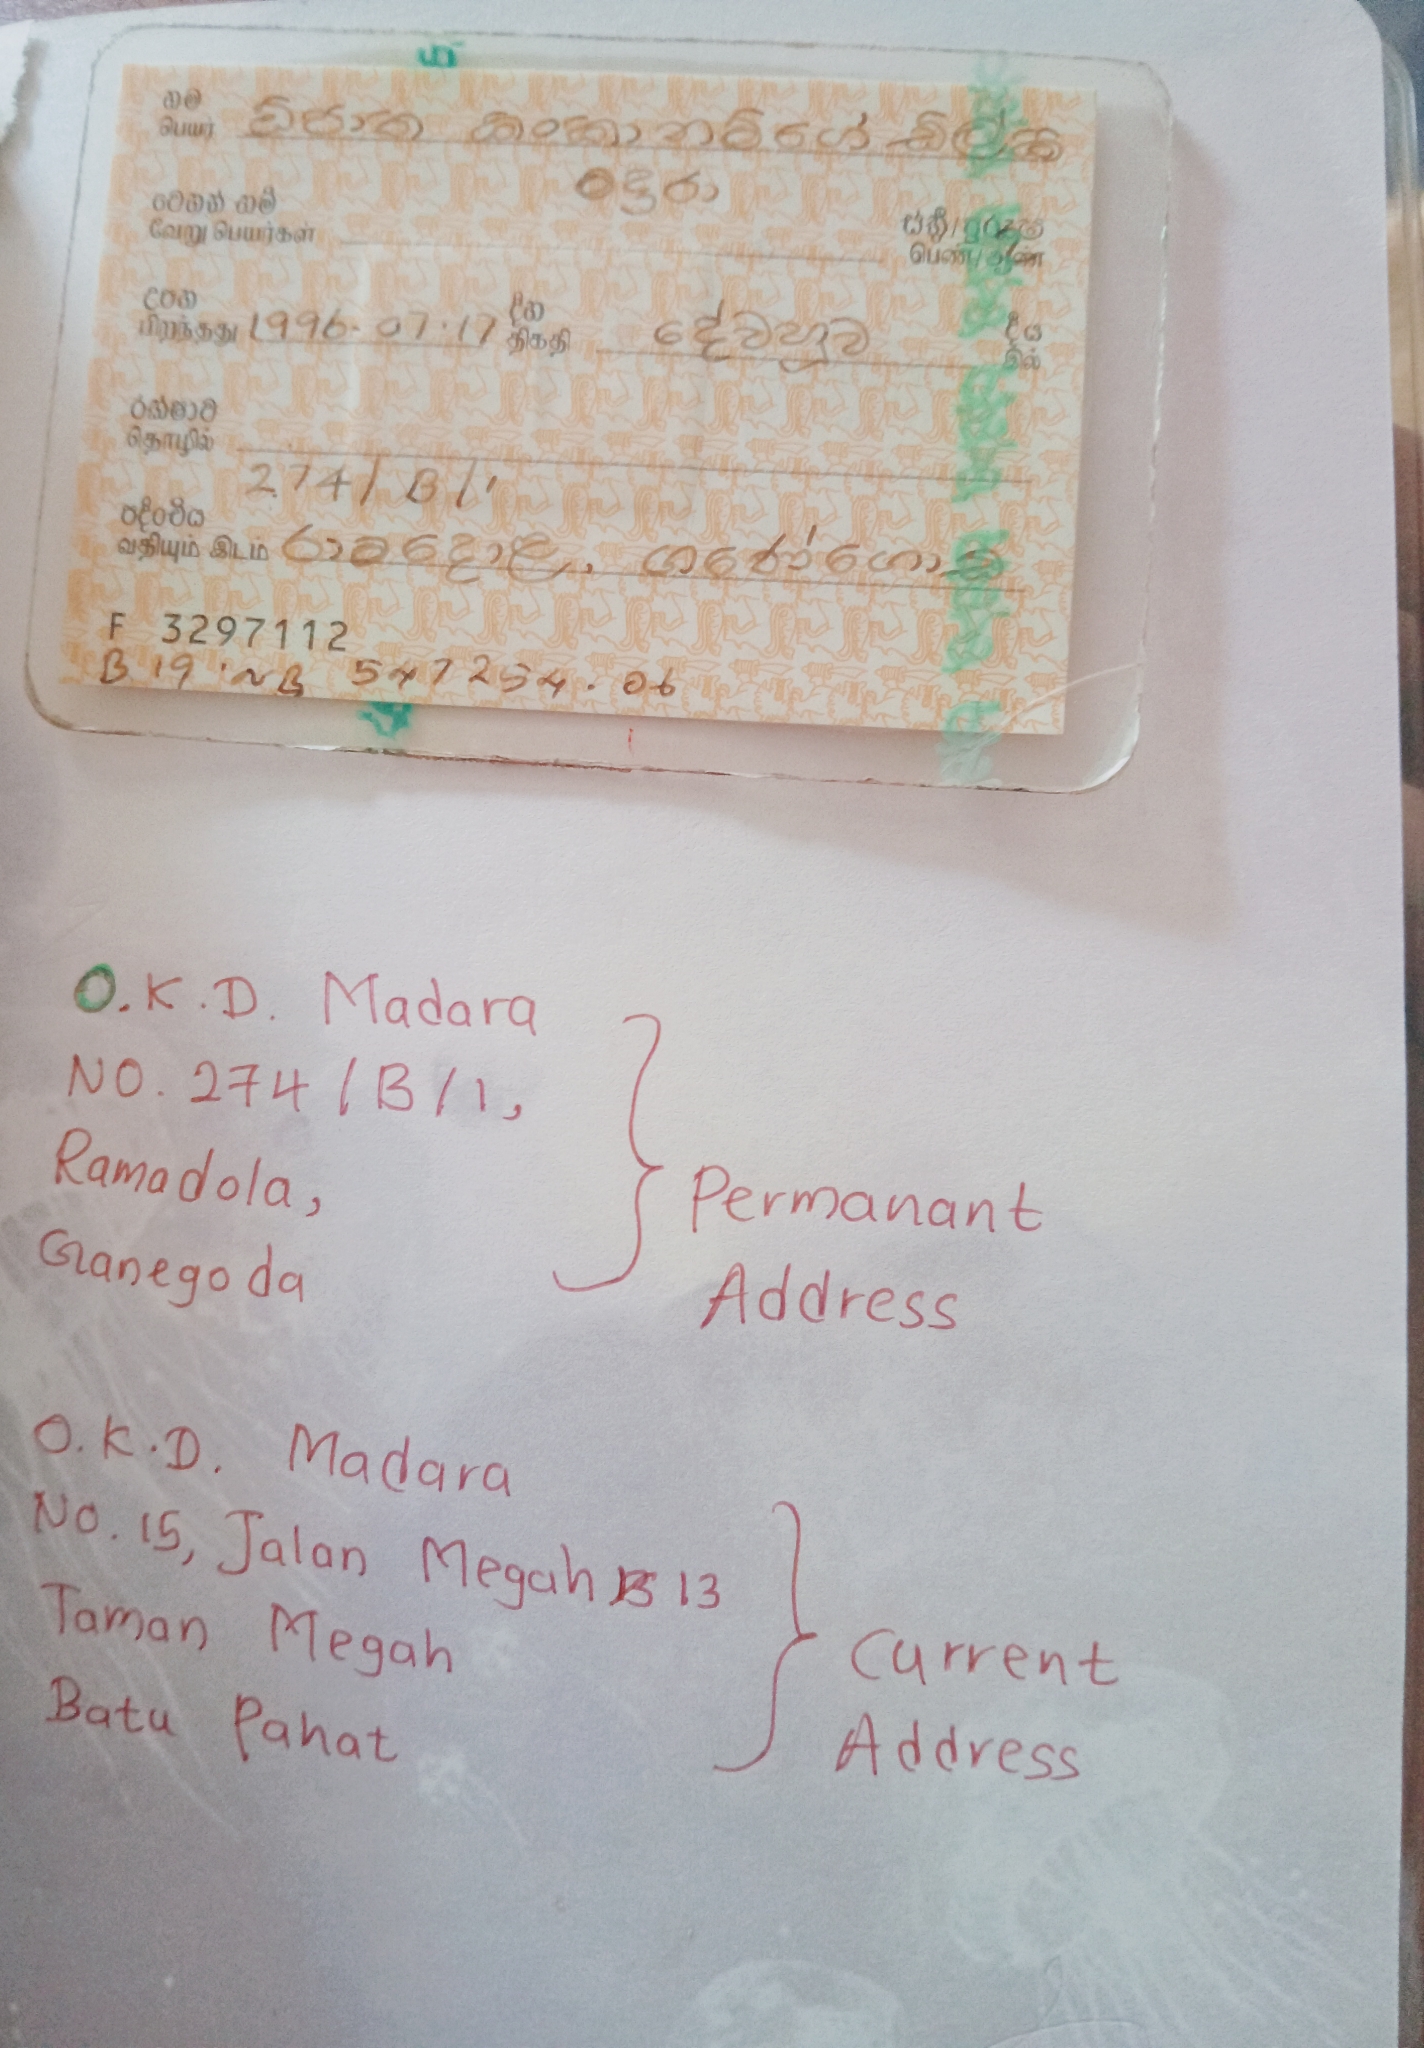 නම
பெயர்
කංකානම්ගේ
මදුරා
වෙනත් නම්
வேறு பெயர்கள்
ස්ත්‍රී/පුරුෂ
பெண்/ஆண்
උපන් 1996.07.17 දින දේවහුව දීය
பிறந்தது திகதி இல்
රක්ෂාව
தொழில்
274/B/1
පදිංචිය
வதியும் இடம் රාමදොළ, ගනේගොඩ
F 3297112
B 19 547254.06
O.K.D. Madara
NO. 274/B/1,
Ramadola,
Ganegoda
Permanant
Address
O.K.D. Madara
No. 15, Jalan Megah 13
Taman Megah
Batu Pahat
Current
Address